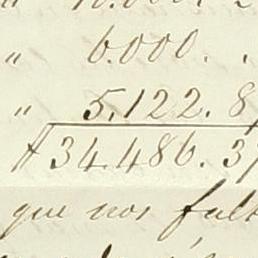 " 6.000. .
" 5.122. 8
# 34.486. 3
que nos falt